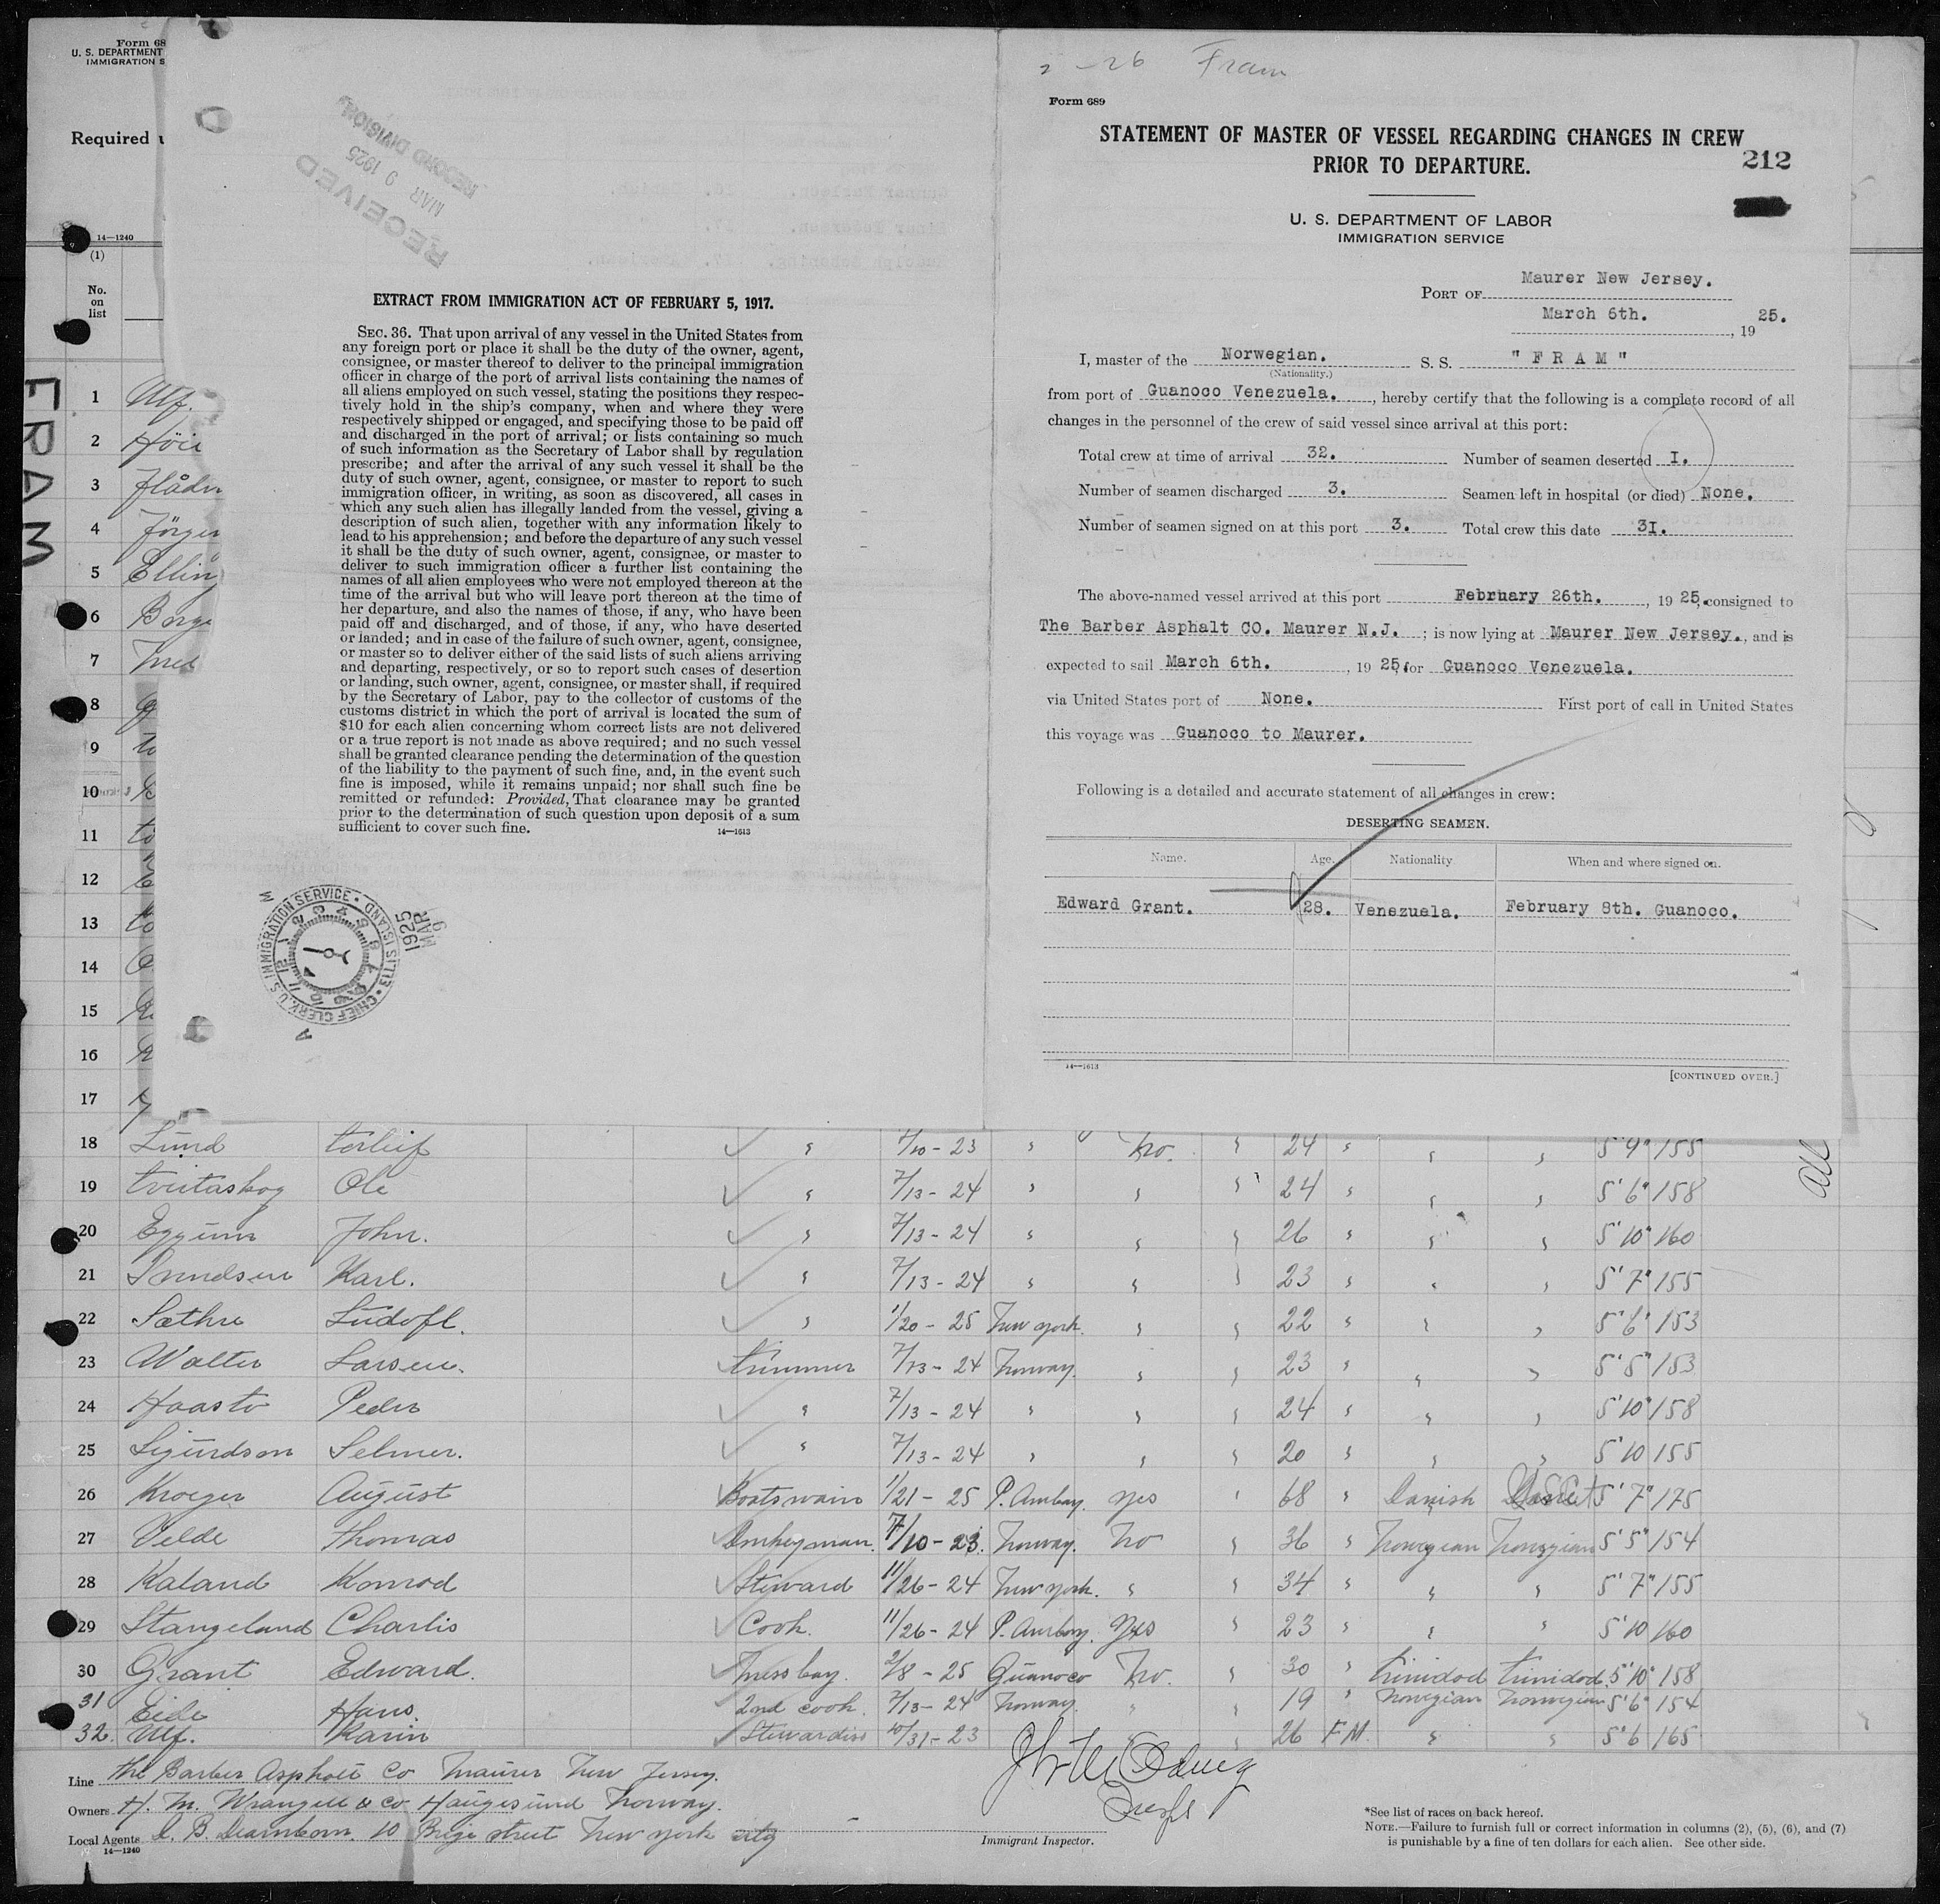 Form 68
U. S. DEPARTMENT
IMMIGRATION S
Required
14—1240
(1)
No.
on
list
FRAM
1 Ulf.
2 Höie
3
4
5 Elling
6
7
8
9
10
11
12
13
14
15
16
17
RECEIVED
MAR 9 1925
RECORD DIVISION
EXTRACT FROM IMMIGRATION ACT OF FEBRUARY 5, 1917.
SEC. 36. That upon arrival of any vessel in the United States from
any foreign port or place it shall be the duty of the owner, agent,
consignee, or master thereof to deliver to the principal immigration
officer in charge of the port of arrival lists containing the names of
all aliens employed on such vessel, stating the positions they respec-
tively hold in the ship's company, when and where they were
respectively shipped or engaged, and specifying those to be paid off
and discharged in the port of arrival; or lists containing so much
of such information as the Secretary of Labor shall by regulation
prescribe; and after the arrival of any such vessel it shall be the
duty of such owner, agent, consignee, or master to report to such
immigration officer, in writing, as soon as discovered, all cases in
which any such alien has illegally landed from the vessel, giving a
description of such alien, together with any information likely to
lead to his apprehension; and before the departure of any such vessel
it shall be the duty of such owner, agent, consignee, or master to
deliver to such immigration officer a further list containing the
names of all alien employees who were not employed thereon at the
time of the arrival but who will leave port thereon at the time of
her departure, and also the names of those, if any, who have been
paid off and discharged, and of those, if any, who have deserted
or landed; and in case of the failure of such owner, agent, consignee,
or master so to deliver either of the said lists of such aliens arriving
and departing, respectively, or so to report such cases of desertion
or landing, such owner, agent, consignee, or master shall, if required
by the Secretary of Labor, pay to the collector of customs of the
customs district in which the port of arrival is located the sum of
$10 for each alien concerning whom correct lists are not delivered
or a true report is not made as above required; and no such vessel
shall be granted clearance pending the determination of the question
of the liability to the payment of such fine, and, in the event such
fine is imposed, while it remains unpaid; nor shall such fine be
remitted or refunded: Provided, That clearance may be granted
prior to the determination of such question upon deposit of a sum
sufficient to cover such fine.
14—1613
CHIEF CLERK, U.S. IMMIGRATION SERVICE • ELLIS ISLAND •
MAR 9 1925
2 -26 Fram
Form 689
STATEMENT OF MASTER OF VESSEL REGARDING CHANGES IN CREW
PRIOR TO DEPARTURE.
212
U. S. DEPARTMENT OF LABOR
IMMIGRATION SERVICE
PORT OF Maurer New Jersey.
March 6th. , 19 25.
I, master of the Norwegian. S. S. " F R A M "
(Nationality.)
from port of Guanoco Venezuela. , hereby certify that the following is a complete record of all
changes in the personnel of the crew of said vessel since arrival at this port:
Total crew at time of arrival 32. Number of seamen deserted I.
Number of seamen discharged 3. Seamen left in hospital (or died) None.
Number of seamen signed on at this port 3. Total crew this date 3I.
The above-named vessel arrived at this port February 26th. , 19 25, consigned to
The Barber Asphalt CO. Maurer N.J. ; is now lying at Maurer New Jersey. , and is
expected to sail March 6th. , 19 25, for Guanoco Venezuela.
via United States port of None. First port of call in United States
this voyage was Guanoco to Maurer.
Following is a detailed and accurate statement of all changes in crew:
DESERTING SEAMEN.
Name. Age. Nationality When and where signed on.
Edward Grant. 28. Venezuela. February 8th. Guanoco.
14—1613
[CONTINUED OVER.]
18 Lund Torleif " 7/10 - 23 " No. " 24 " " " 5'9" 155
19 Tveitaskog Ole " 7/13 - 24 " " " 24 " " " 5'6" 158
20 Eggum John. " 7/13 - 24 " " " 26 " " " 5'10" 160
21 Karl. " 7/13 - 24 " " " 23 " " " 5'7" 155
22 Sæthre Ludofl. " 1/20 - 25 New york. " " 22 " " " 5'6" 153
23 Walter Larsen. trimmer 7/13 - 24 Norway. " " 23 " " " 5'5" 153
24 Haasto Peder " 7/13 - 24 " " " 24 " " " 5'10" 158
25 Sigurdson Selmer. " 7/13 - 24 " " " 20 " " " 5'10 155
26 Kroeger August Boatswain 1/21 - 25 P. Amboy. yes " 68 " Danish 5'7" 175
27 Velde Thomas Donkeyman. 7/10 - 23. Norway. No " 36 " Norwegian Norwegian 5'5" 154
28 Kaland Konrad Steward 11/26 - 24 New york. " " 34 " " " 5'7" 155
29 Stangeland Charlis Cook. 11/26 - 24 P. Amboy. yes " 23 " " " 5'10 160
30 Grant Edward. Messboy. 2/8 - 25 Guanoco No. " 30 " Trinidod Trinidod. 5'10" 158
31 Eide Hans. 2nd cook. 7/13 - 24 Norway. " " 19 " Norwegian Norwegian 5'6" 154
32. Ulf. Karin Stewardiss 10/31 - 23 " " 26 F M. " " 5'6 165
Line The Barber Asphalt Co Maurer New Jersey.
Owners H. M. Wrangell & Co Haugesund Norway.
Local Agents S. B. Dearnborn. 10 Brige street New york city
14—1240
Immigrant Inspector.
*See list of races on back hereof.
NOTE.—Failure to furnish full or correct information in columns (2), (5), (6), and (7)
is punishable by a fine of ten dollars for each alien. See other side.